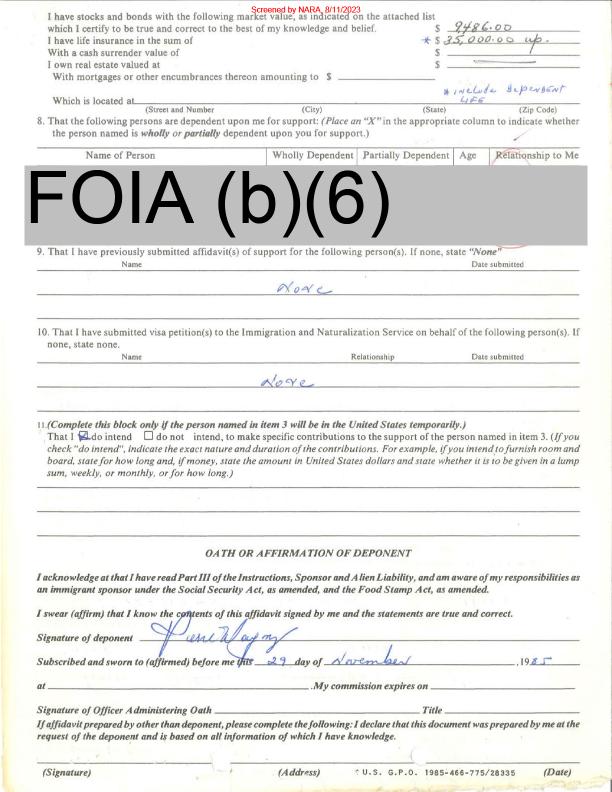 Screened by NARA, 8/11/2023
I have stocks and bonds with the following market value, as indicated on the attached list
which I certify to be true and correct to the best of my knowledge and belief. $ 9486.00
I have life insurance in the sum of * $ 35,000.00 up.
With a cash surrender value of $
I own real estate valued at $
With mortgages or other encumbrances thereon amounting to $
* include dependent
Which is located at LIFE
(Street and Number) (City) (State) (Zip Code)
8. That the following persons are dependent upon me for support: (Place an "X" in the appropriate column to indicate whether
the person named is wholly or partially dependent upon you for support.)
Name of Person Wholly Dependent Partially Dependent Age Relationship to Me
FOIA (b)(6)
9. That I have previously submitted affidavit(s) of support for the following person(s). If none, state "None"
Name Date submitted
None
10. That I have submitted visa petition(s) to the Immigration and Naturalization Service on behalf of the following person(s). If
none, state none.
Name Relationship Date submitted
None
11.(Complete this block only if the person named in item 3 will be in the United States temporarily.)
That I ☑ do intend ☐ do not intend, to make specific contributions to the support of the person named in item 3. (If you
check "do intend", indicate the exact nature and duration of the contributions. For example, if you intend to furnish room and
board, state for how long and, if money, state the amount in United States dollars and state whether it is to be given in a lump
sum, weekly, or monthly, or for how long.)
OATH OR AFFIRMATION OF DEPONENT
I acknowledge at that I have read Part III of the Instructions, Sponsor and Alien Liability, and am aware of my responsibilities as
an immigrant sponsor under the Social Security Act, as amended, and the Food Stamp Act, as amended.
I swear (affirm) that I know the contents of this affidavit signed by me and the statements are true and correct.
Signature of deponent Pierre
Subscribed and sworn to (affirmed) before me this 29 day of November , 1985
at . My commission expires on
Signature of Officer Administering Oath Title
If affidavit prepared by other than deponent, please complete the following: I declare that this document was prepared by me at the
request of the deponent and is based on all information of which I have knowledge.
(Signature) (Address) U.S. G.P.O. 1985-466-775/28335 (Date)